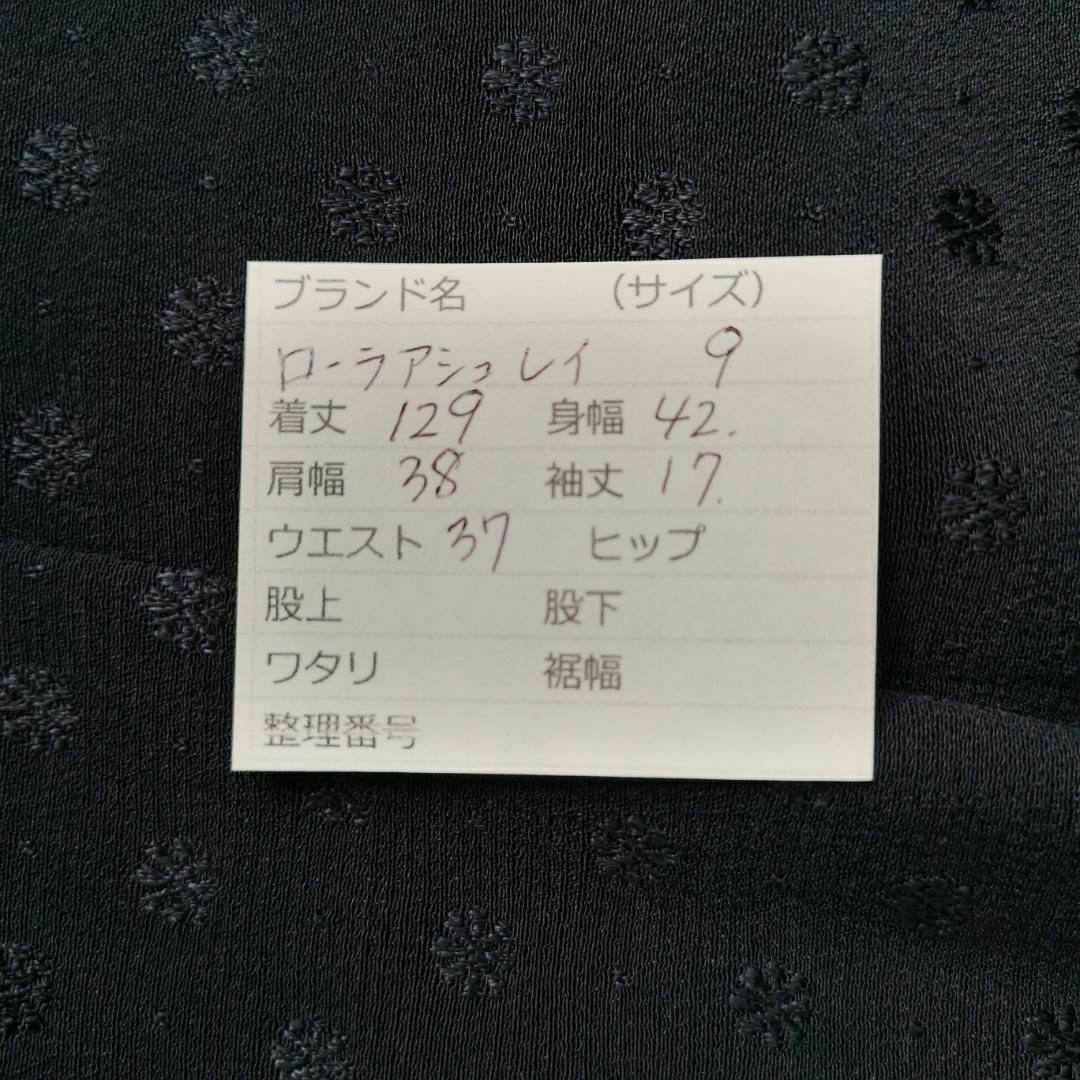 ブランド名 （サイズ）
ローラアシュレイ 9
着丈 129 身幅 42.
肩幅 38 袖丈 17.
ウエスト 37 ヒップ
股上 股下
ワタリ 裾幅
整理番号